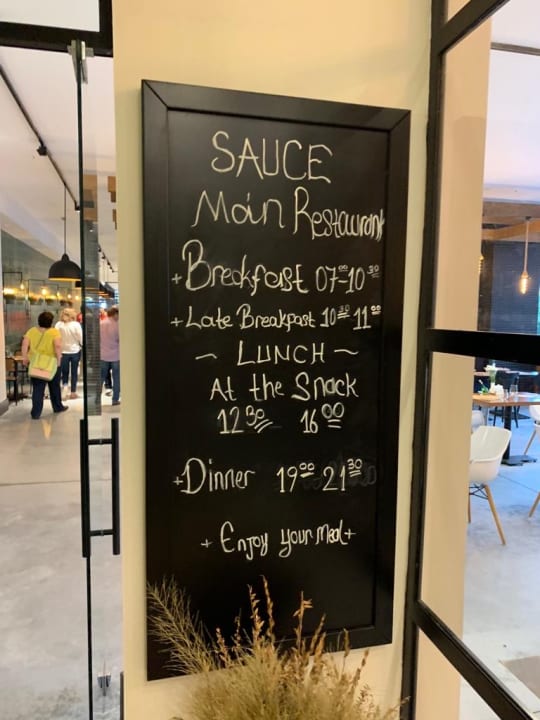 SAUCE
Main Restaurant
+Breakfast 07⁰⁰-10³⁰
+Late Breakfast 10³⁰ 11⁰⁰
~ LUNCH ~
At the Snack
12³⁰ 16⁰⁰
+Dinner 19⁰⁰ 21³⁰
+ Enjoy your meal+